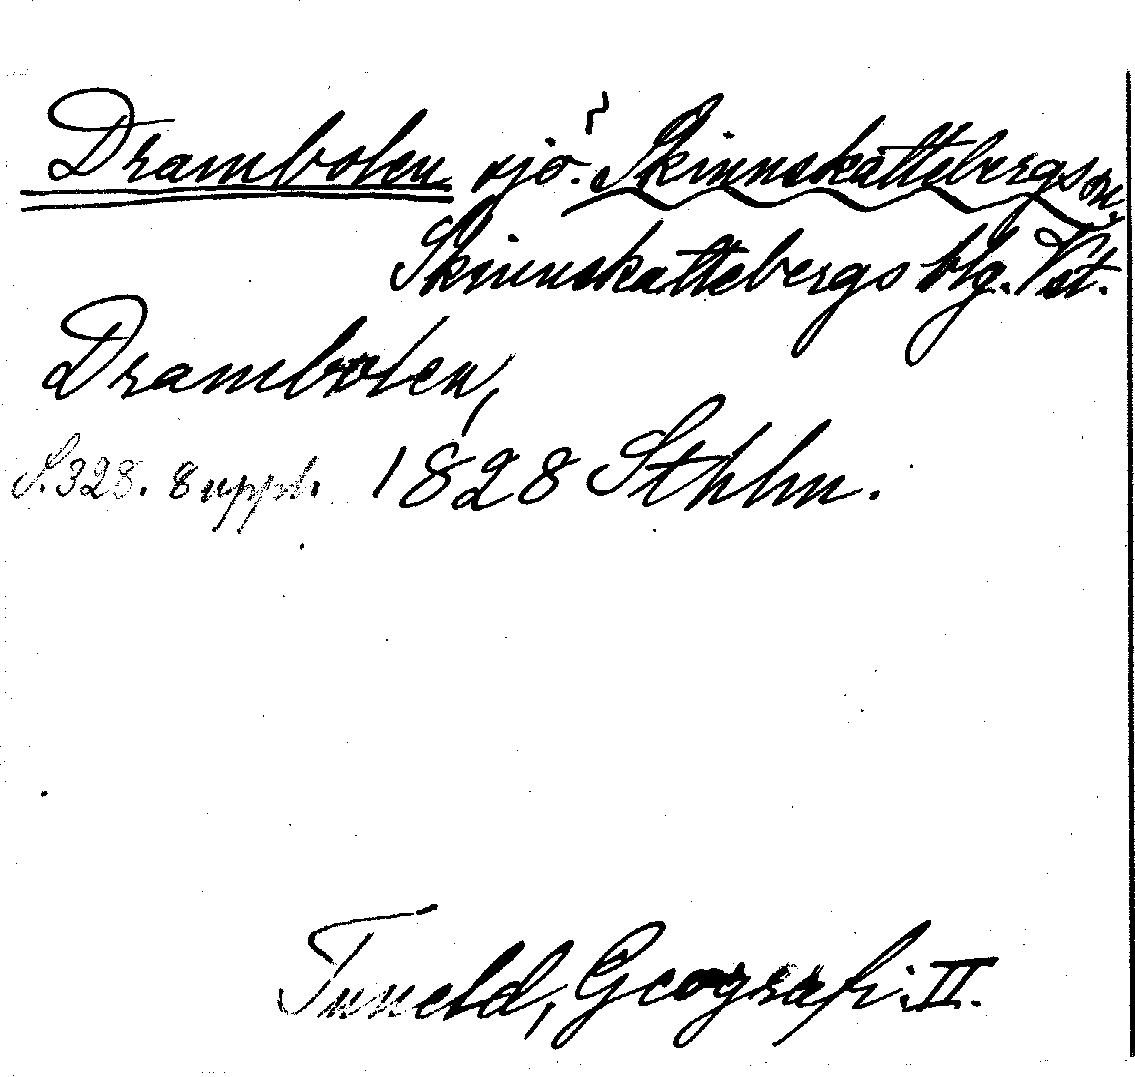 Drambolen sjö. Skinnskattebergs sn.
Skinnskattebergs blg. Vst.
Drambolen,
S. 328. 8 uppl. 1828 Sthlm.
Tuneld, Geografi. II.